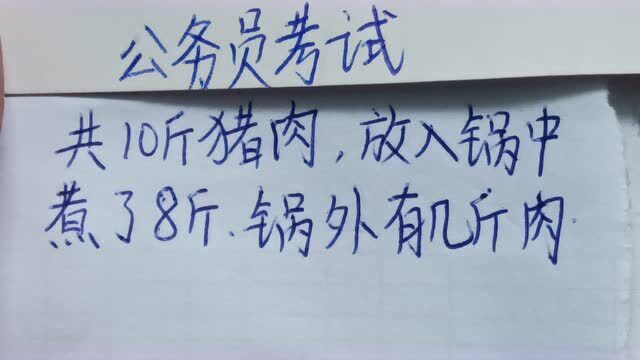 公务员考试
共10斤猪肉，放入锅中
煮了8斤.锅外有几斤肉.